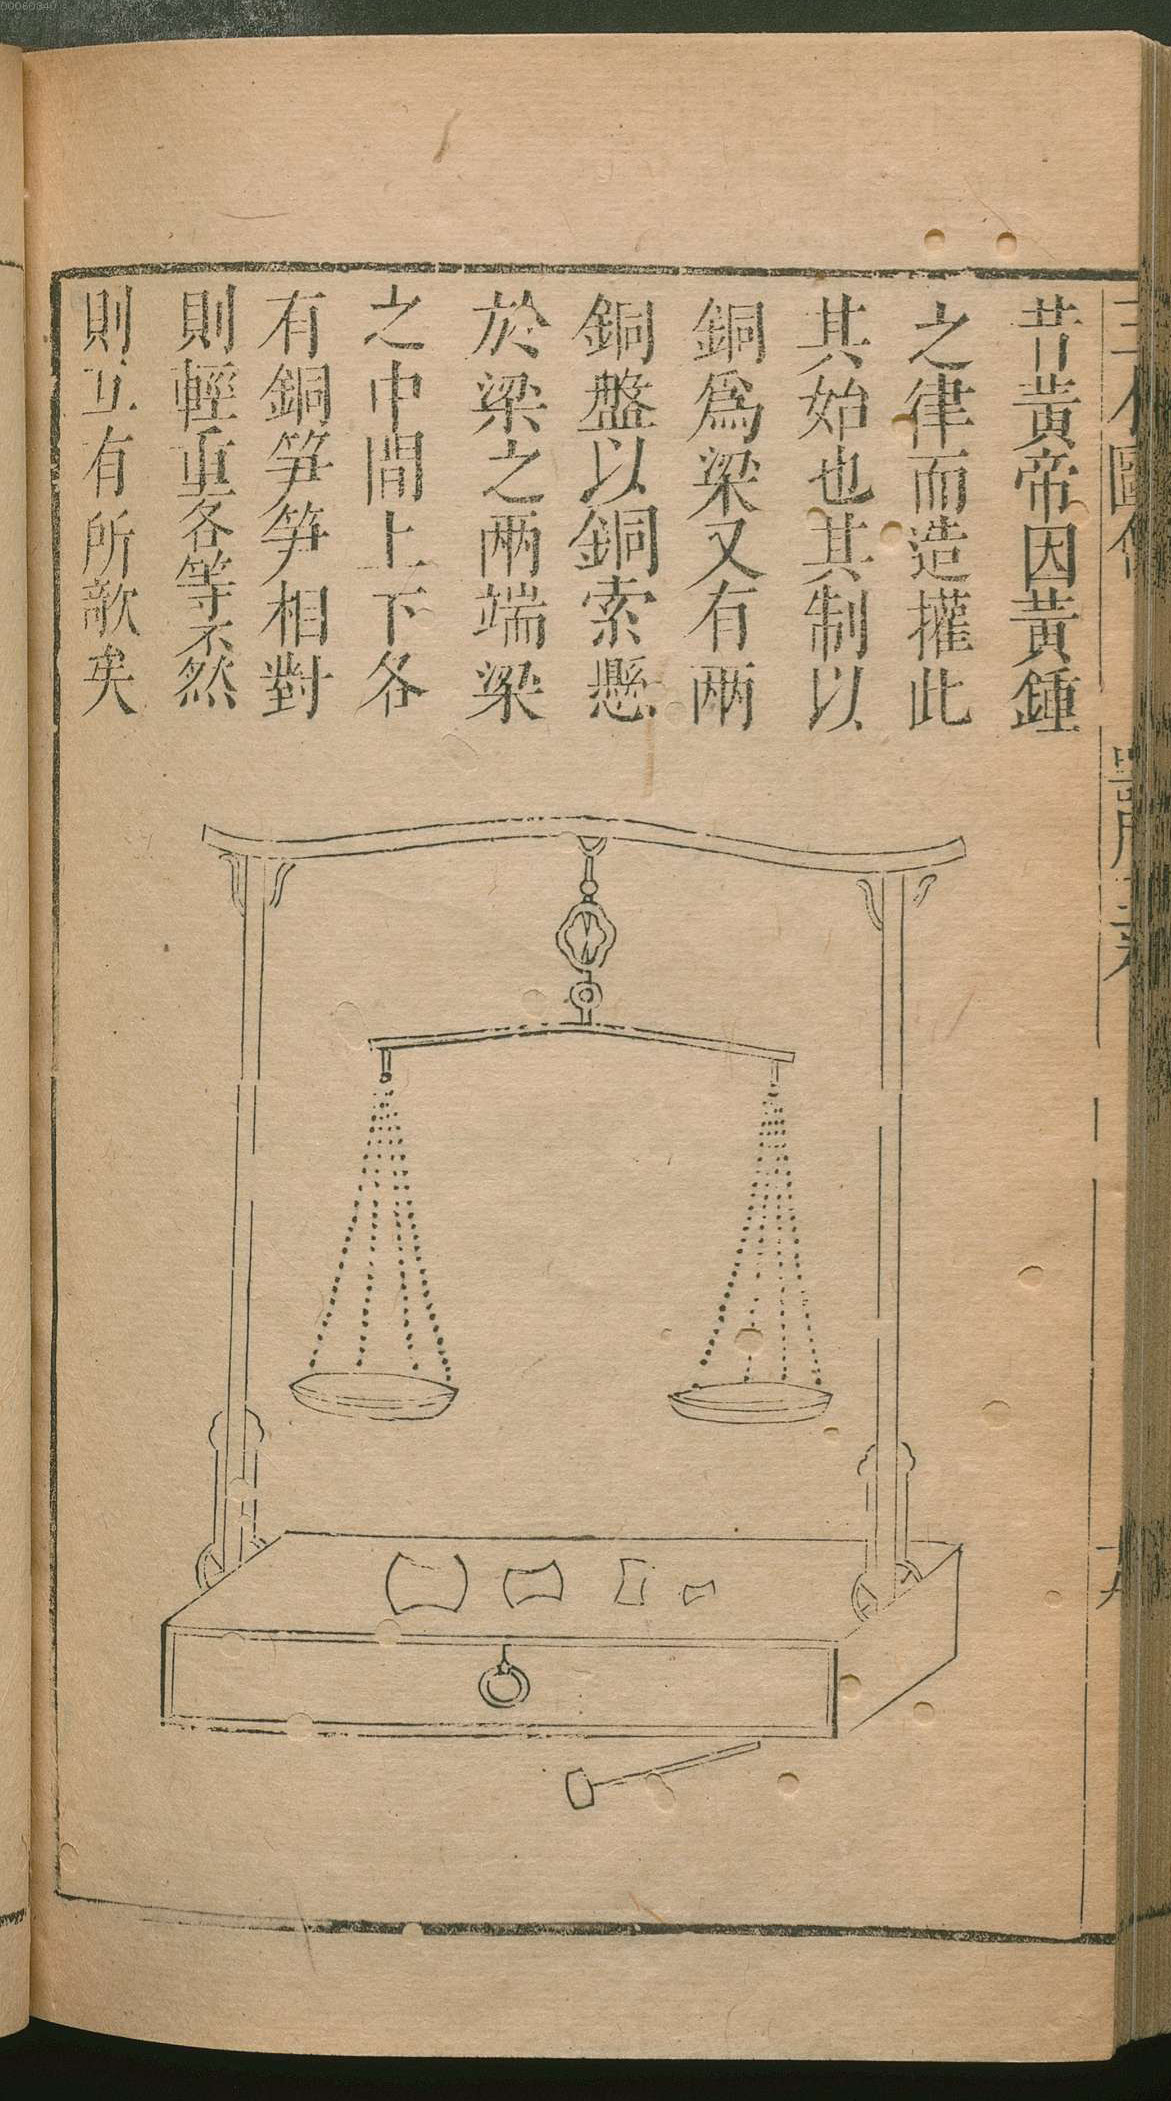 昔黃帝因黃鍾
之律而造權此
其始也其制以
銅爲梁又有兩
銅盤以銅索懸
於梁之兩端梁
之中間上下各
有銅笋笋相對
則輕重各等不然
則互有所欹矣
00060340